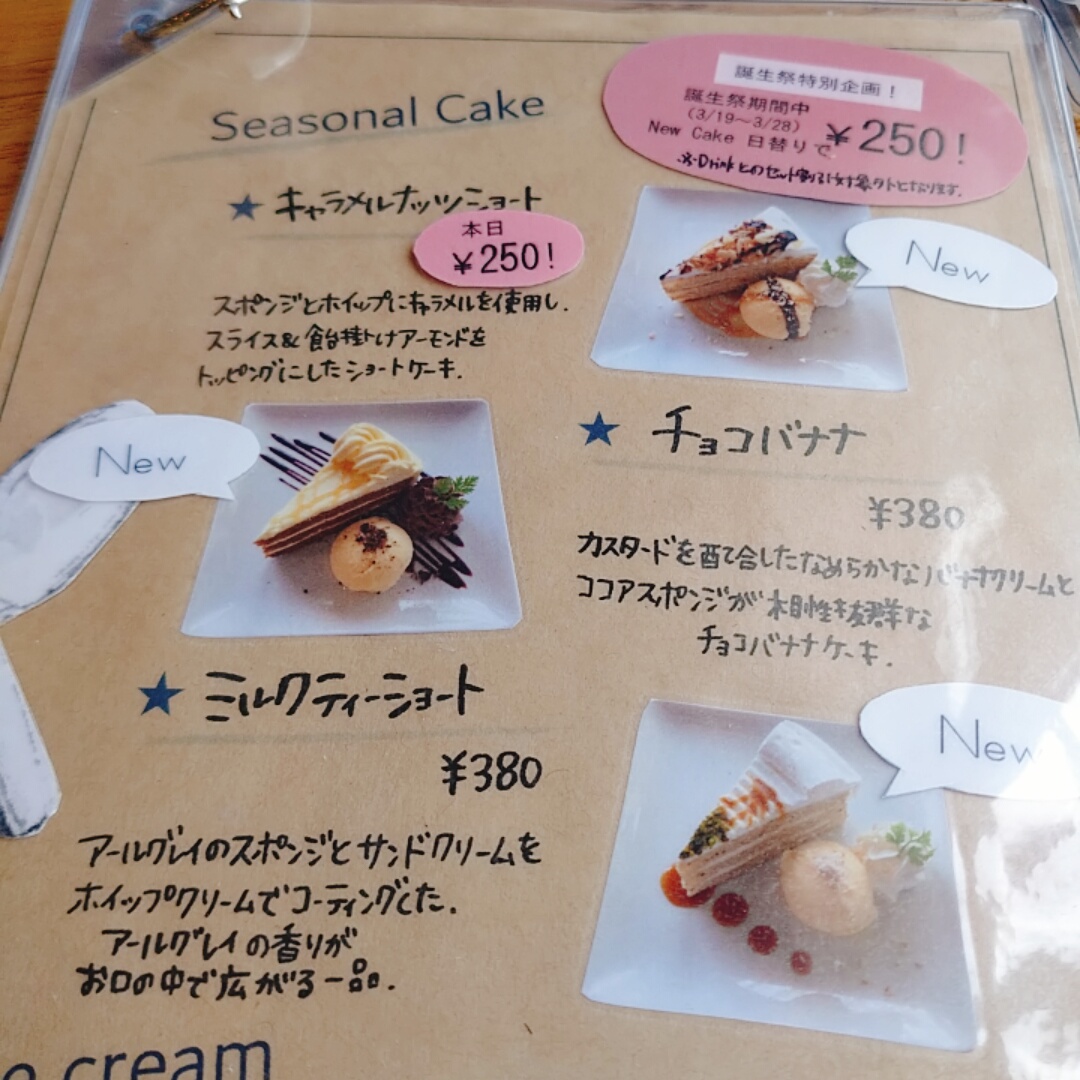 Seasonal Cake
誕生祭特別企画！
誕生祭期間中
(3/19〜3/28)
New Cake 日替りで ￥250！
※Drinkとのセット割引は対象外となります。
★ キャラメルナッツショート
本日
￥250！
New
スポンジとホイップにキャラメルを使用し、
スライス&飴掛けアーモンドを
トッピングにしたショートケーキ.
New
★ チョコバナナ
¥380
カスタードを配合したなめらかなバナナクリームと
ココアスポンジが相性抜群な
チョコバナナケーキ.
★ ミルクティーショート
¥380
New
アールグレイのスポンジとサンドクリームを
ホイップクリームでコーティングした.
アールグレイの香りが
お口の中で広がる一品.
cream